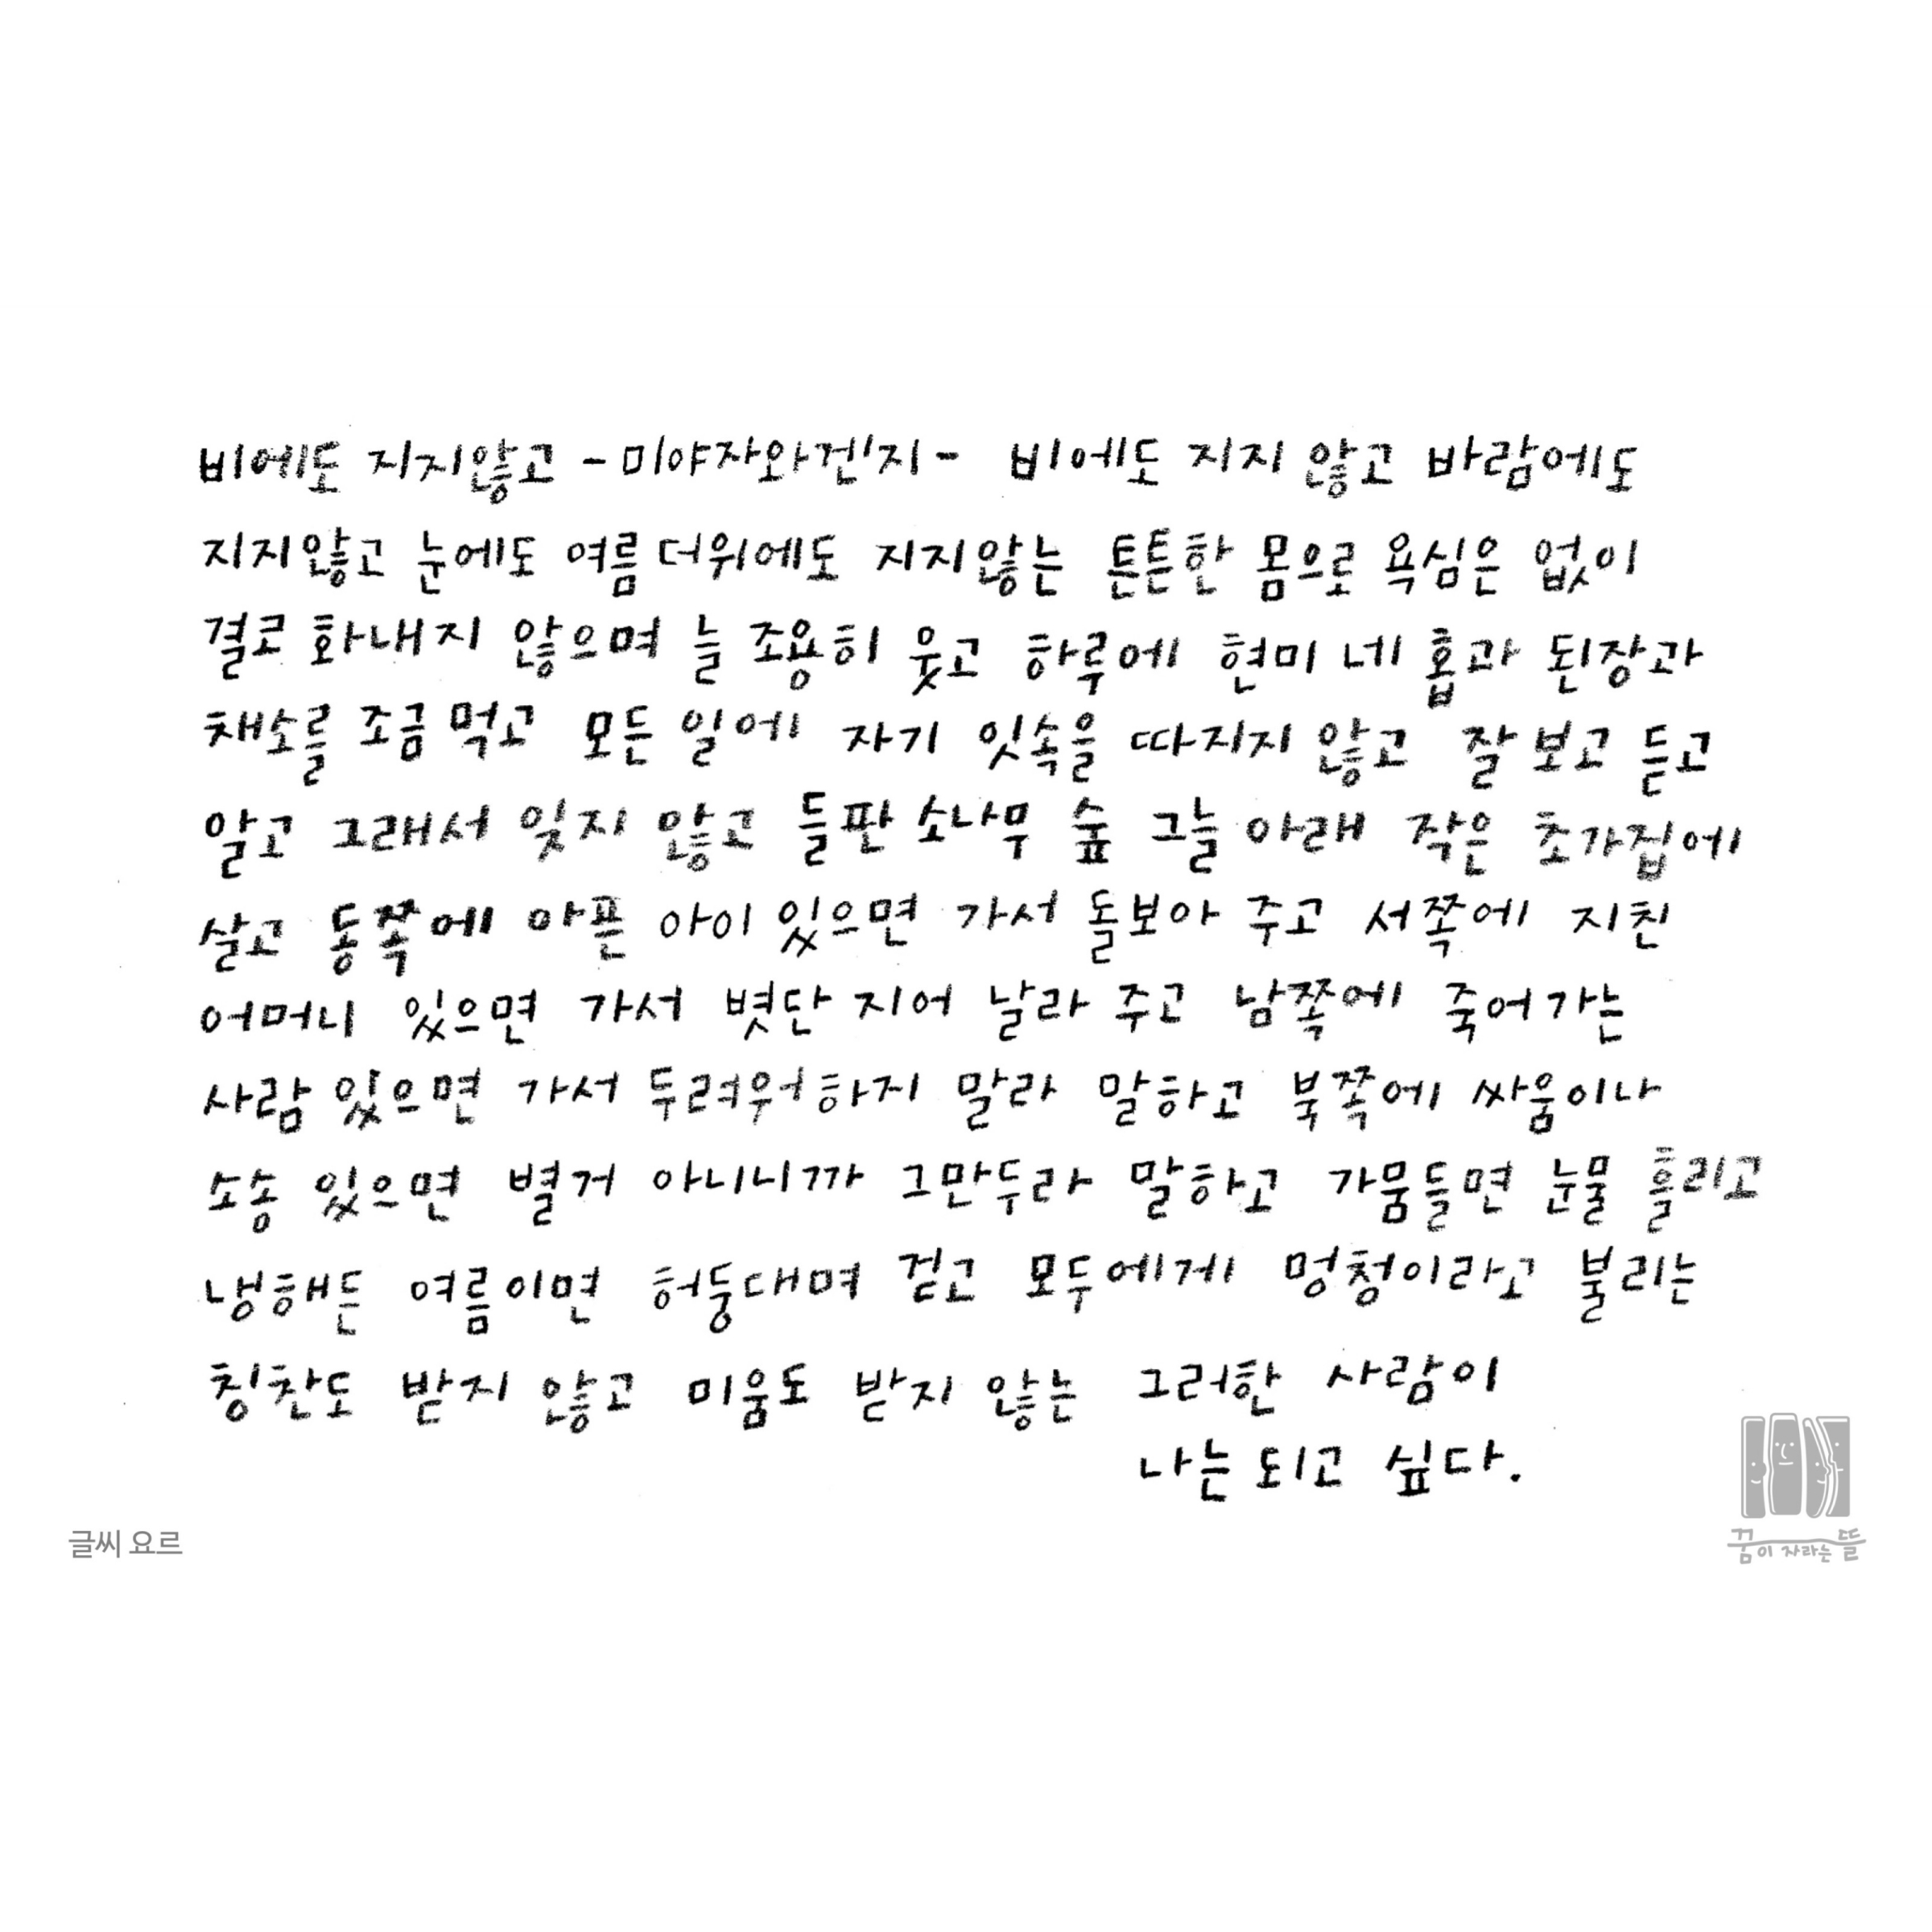 비에도 지지않고 -미야자와건지- 비에도 지지 않고 바람에도
지지않고 눈에도 여름 더위에도 지지않는 튼튼한 몸으로 욕심은 없이
결코 화내지 않으며 늘 조용히 웃고 하루에 현미 네 홉과 된장과
채소를 조금 먹고 모든 일에 자기 잇속을 따지지 않고 잘 보고 듣고
알고 그래서 잊지 않고 들판 소나무 숲 그늘 아래 작은 초가집에
살고 동쪽에 아픈 아이 있으면 가서 돌보아 주고 서쪽에 지친
어머니 있으면 가서 볏단 지어 날라 주고 남쪽에 죽어가는
사람 있으면 가서 두려워하지 말라 말하고 북쪽에 싸움이나
소송 있으면 별거 아니니까 그만두라 말하고 가뭄들면 눈물 흘리고
냉해든 여름이면 허둥대며 걷고 모두에게 멍청이라고 불리는
칭찬도 받지 않고 미움도 받지 않는 그러한 사람이
나는 되고 싶다.
글씨 요르
꿈이 자라는 뜰